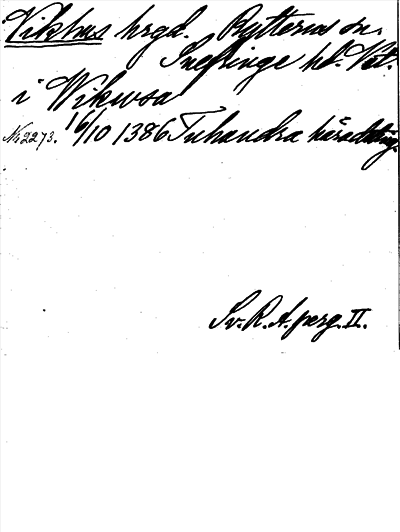 Vikhus hrgd. Rytterns sn.
Snefringe hd. Vstl.
i Wikwsa
No 2273. 16/10 1386 Tuhundra häradsting.
Sv. R. A. perg. II.